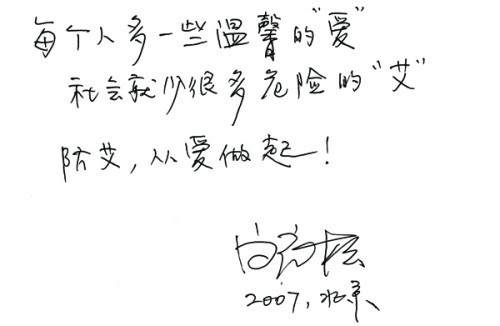 每个人多一些温馨的“爱”
社会就少很多危险的“艾”
防艾，从爱做起！
白岩松
2007，北京